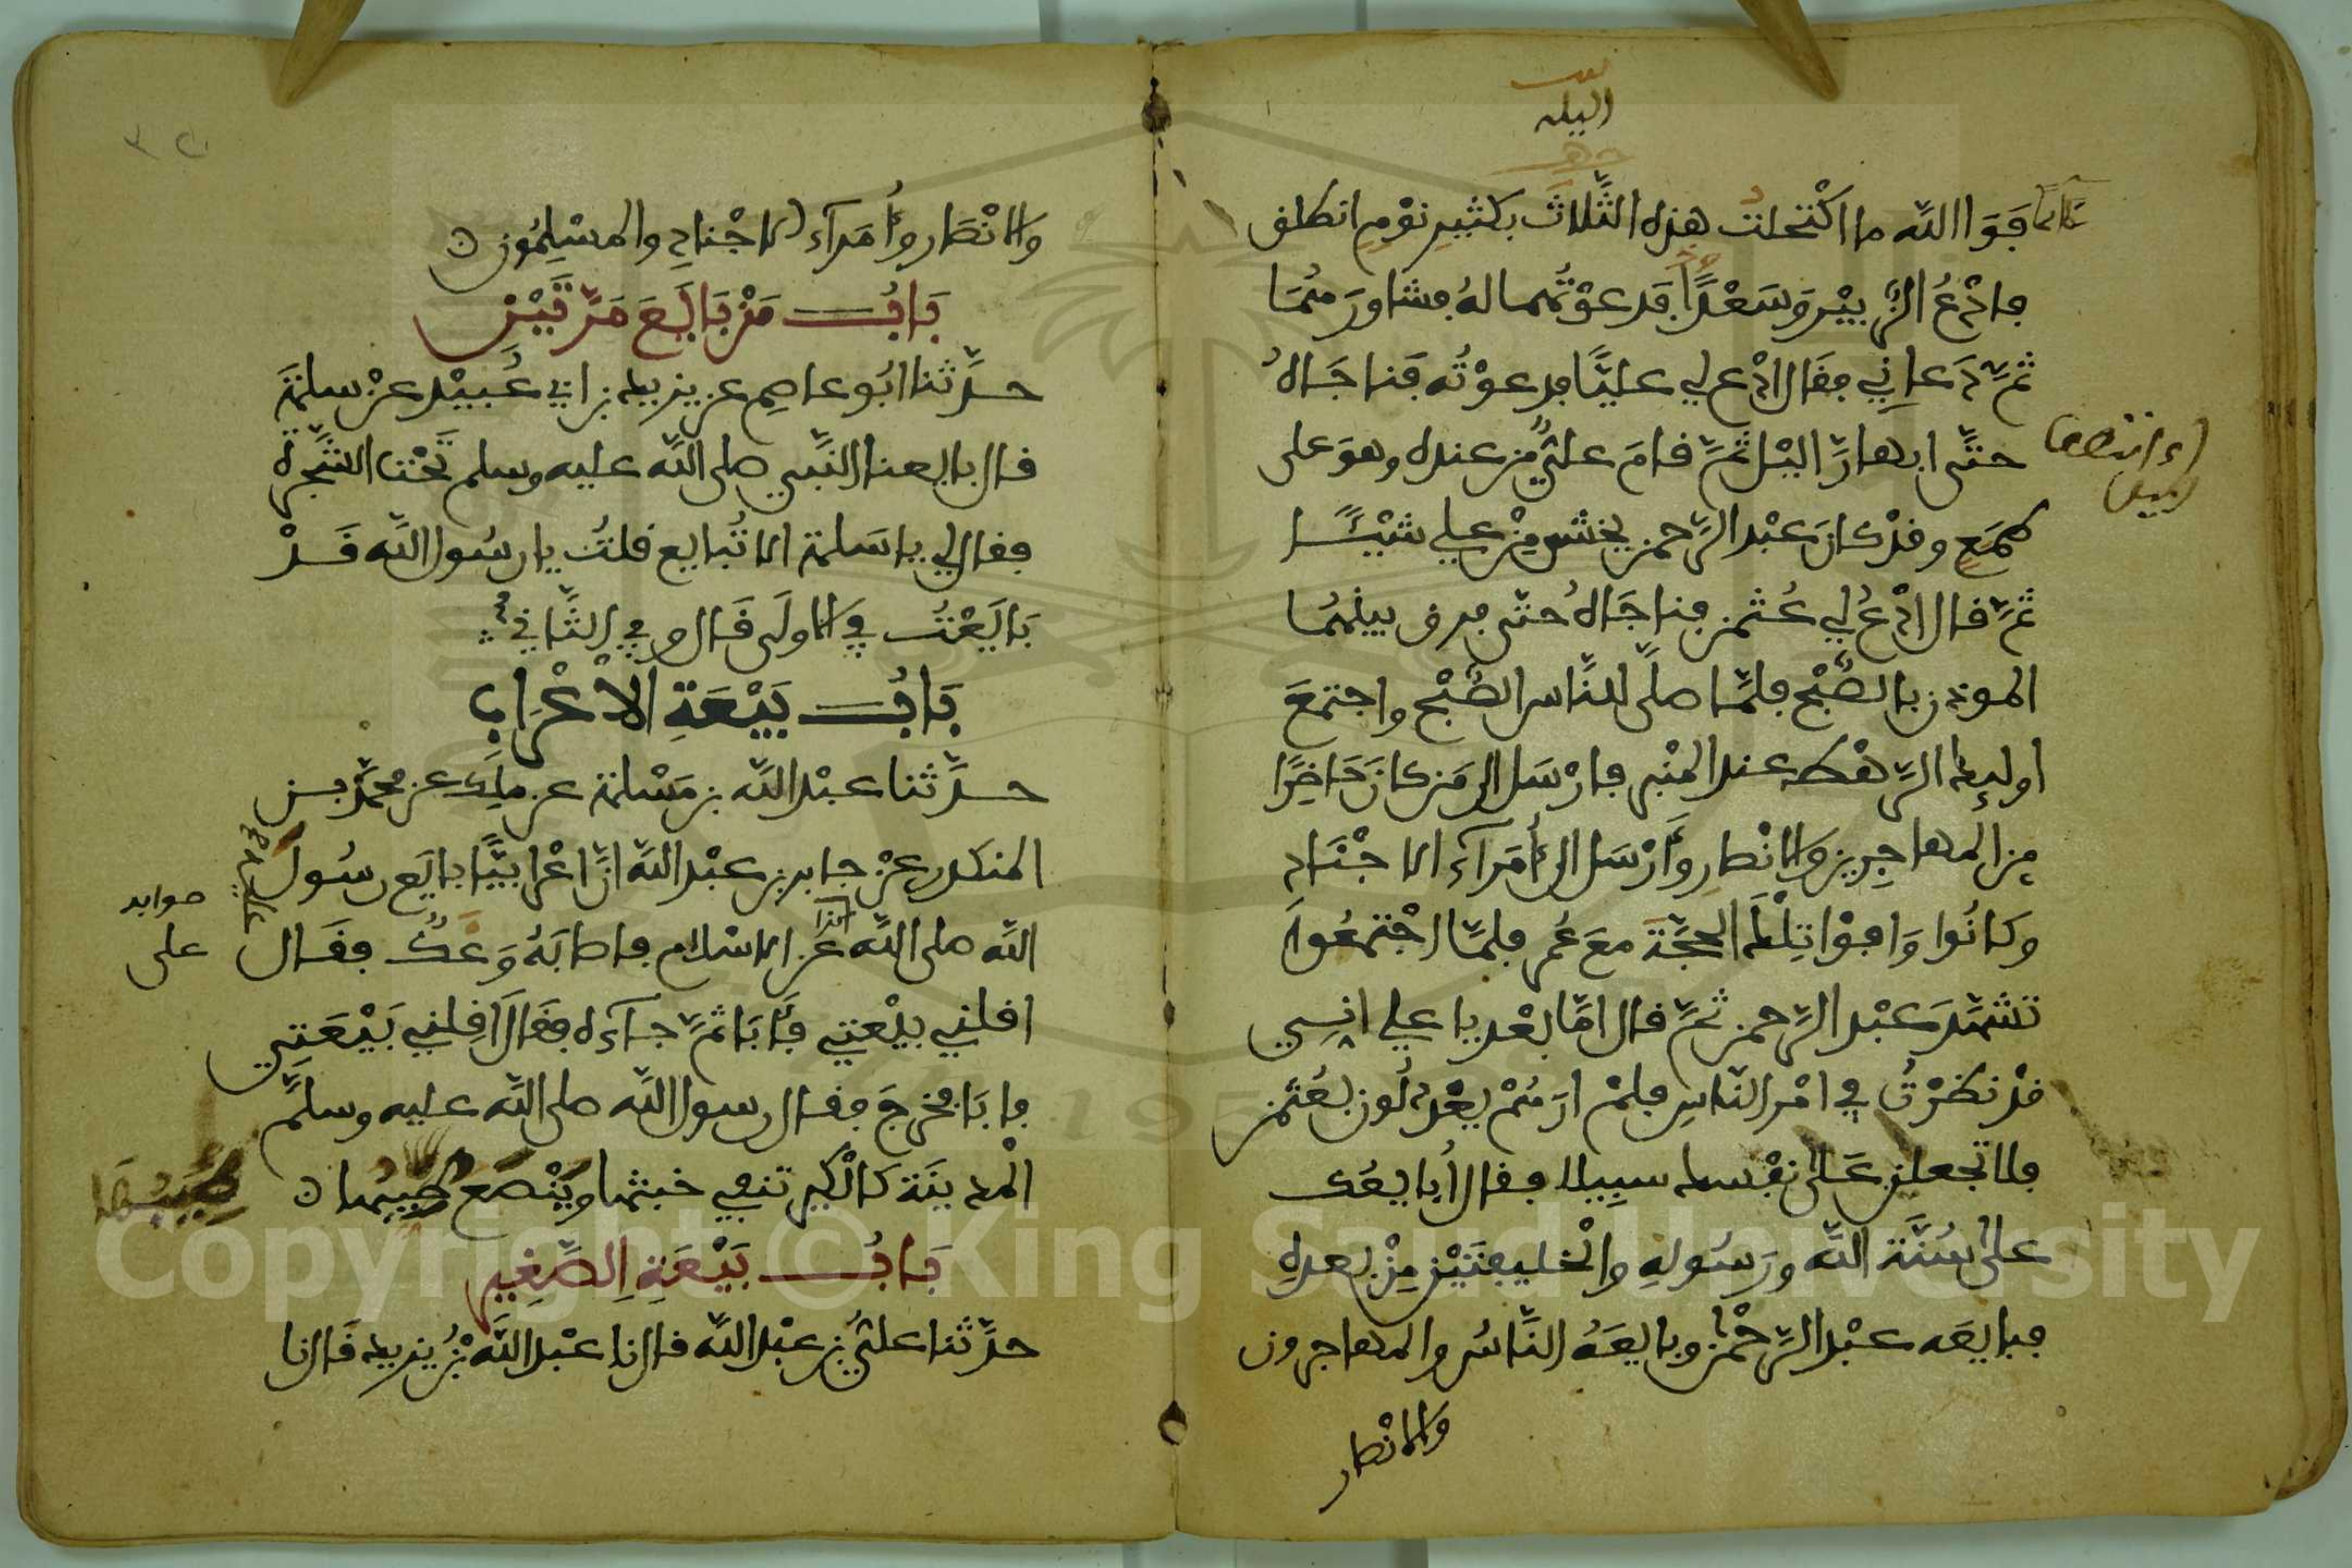 الليله
نائما فَوَاالله ما اكْتحلت هذه الثَّلاثَ بكثيرِ نوْمٍ انطلق
فادْعُ الزُّبيْر وَسَعْدًا فدعوْتُهما لهُ فشاورَهُمَا
ثمَّ دَعاني فقال ادْع لي عليًّا فدعوْتُه فناجَاهُ
حتَّى ابهارَّ اليْل ثمَّ قامَ عليٌّ من عنده وهوَ على
اي انتصف
الليل
طمَعٍ وقدْ كانَ عبْد الرَّحمن يخشى مِنْ علي شيْـًٔا
ثمَّ قال ادْعُ لي عُثمن فناجَاهُ حتّى فرق بينهُمَا
الموذن بالصُّبْح فلمَّا صلَّى للنَّاس الصُّبْح واجتمعَ
اولـٰئِك الرَّهْط عند المنْبر فارْسَل الى مَن كانَ حَاضِرًا
مِن المهاجِرين والانْصارِ وَأرْسَل الى أُمَرآء الاجْنَاد
وكانُوا وَافوْا تِلْكَ الحجَّة معَ عُمر فلمَّا اجْتمعُوا
تشهَّدَ عبْد الرَّحمن ثمَّ قال امَّا بعْد يا علي اني
قدْ نظرْتُ في امْر النَّاسِ فلمْ ارَهُمْ يعْدلُون بعُثمن
فلا تجعلن عَلى نفْسك سبِيلا فقال أُبايعُك
على سُنَّة الله ورَسُولهِ والْخليفتَيْن مِنْ بعدهِ
فبايعَه عبْد الرَّحْمن وبايعَهُ النَّاسُ والمهاجرون
والانصار
٣٢٠
والانْصَار وأُمَرآء الاجْنادِ والمسْلِمُون
بَابُ مَنْ بَايَعَ مَرَّتَيْنِ
حدَّثنا ابُو عاصِم عن يزيد بن ابي عُبيْد عنْ سلمَةَ
قال بايعنا النَّبي صلى الله عليه وسلم تحْت الشَّجرة
فقال لي يا سَلمة الا تُبايع قلتُ يا رسُول الله قَدْ
بَايَعْتُ في الاولَى قَال وفي الثَّاني
بَابُ بَيْعَةِ الاْعْرَابِ
حدَّثنا عبْد الله بن مَسْلمة عن ملِك عن محمَّد بن
المنكدر عنْ جابر بن عبْد الله انَّ اعْرابيًّا بايَع رسُول
الله صلى الله عن الاسْلام فاصابَهُ وَعْكٌ فقَال
صوابه
على
اقلني بيْعتي فأبَا ثمَّ جآءه فقَال اَقِلني بَيْعَتِي
فابَا فخرجَ فقال رسول الله صلى الله عليه وسلَّم
الْمدينَة كالْكير تنفي خبثها ويَنْصَع طيبها
طِيبُهَا
بَابُ بَيْعَةِ الصَّغِيرِ
حدَّثنا عليُّ بن عبْد الله قال نا عبْد الله بْنُ يزيد قَال نا